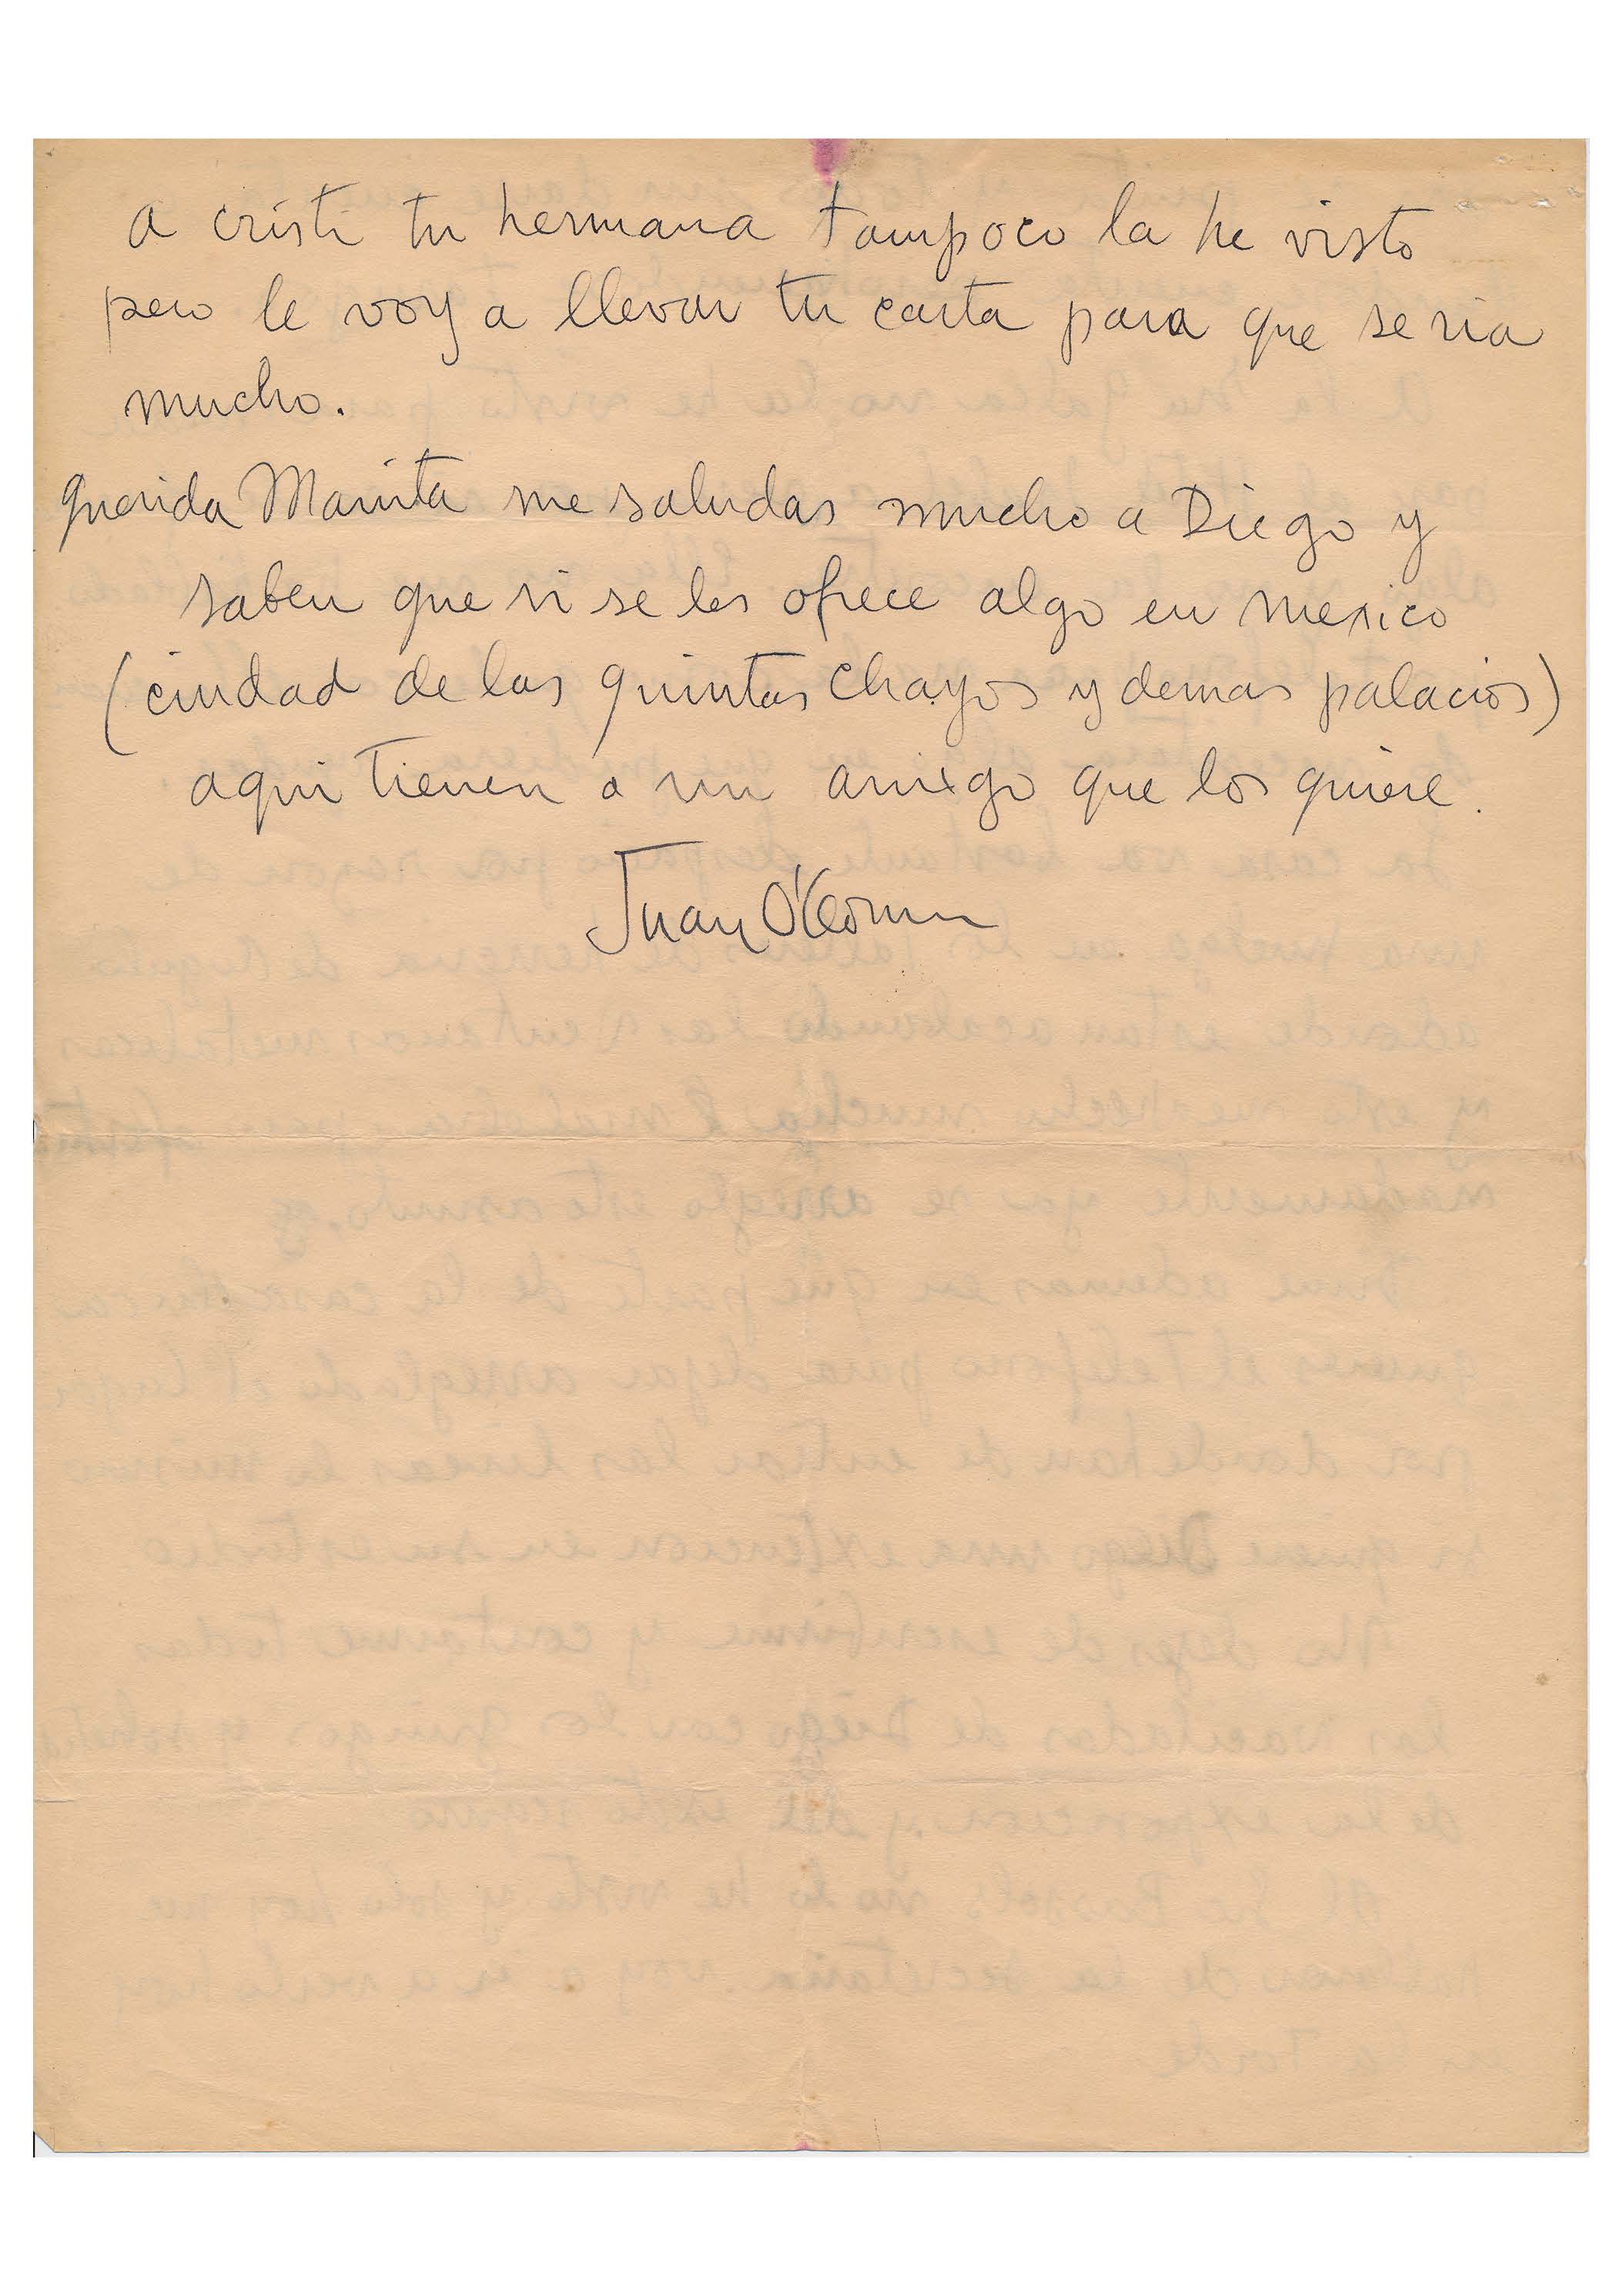 a cristi tu hermana tampoco la he visto
pero le voy a llevar tu carta para que se ria
mucho.
querida Manita me saludas mucho a Diego y
saben que si se les ofrece algo en mexico
(ciudad de las quintas chayos y demas palacios)
aqui tienen a un amigo que los quiere.
Juan O'Gorman